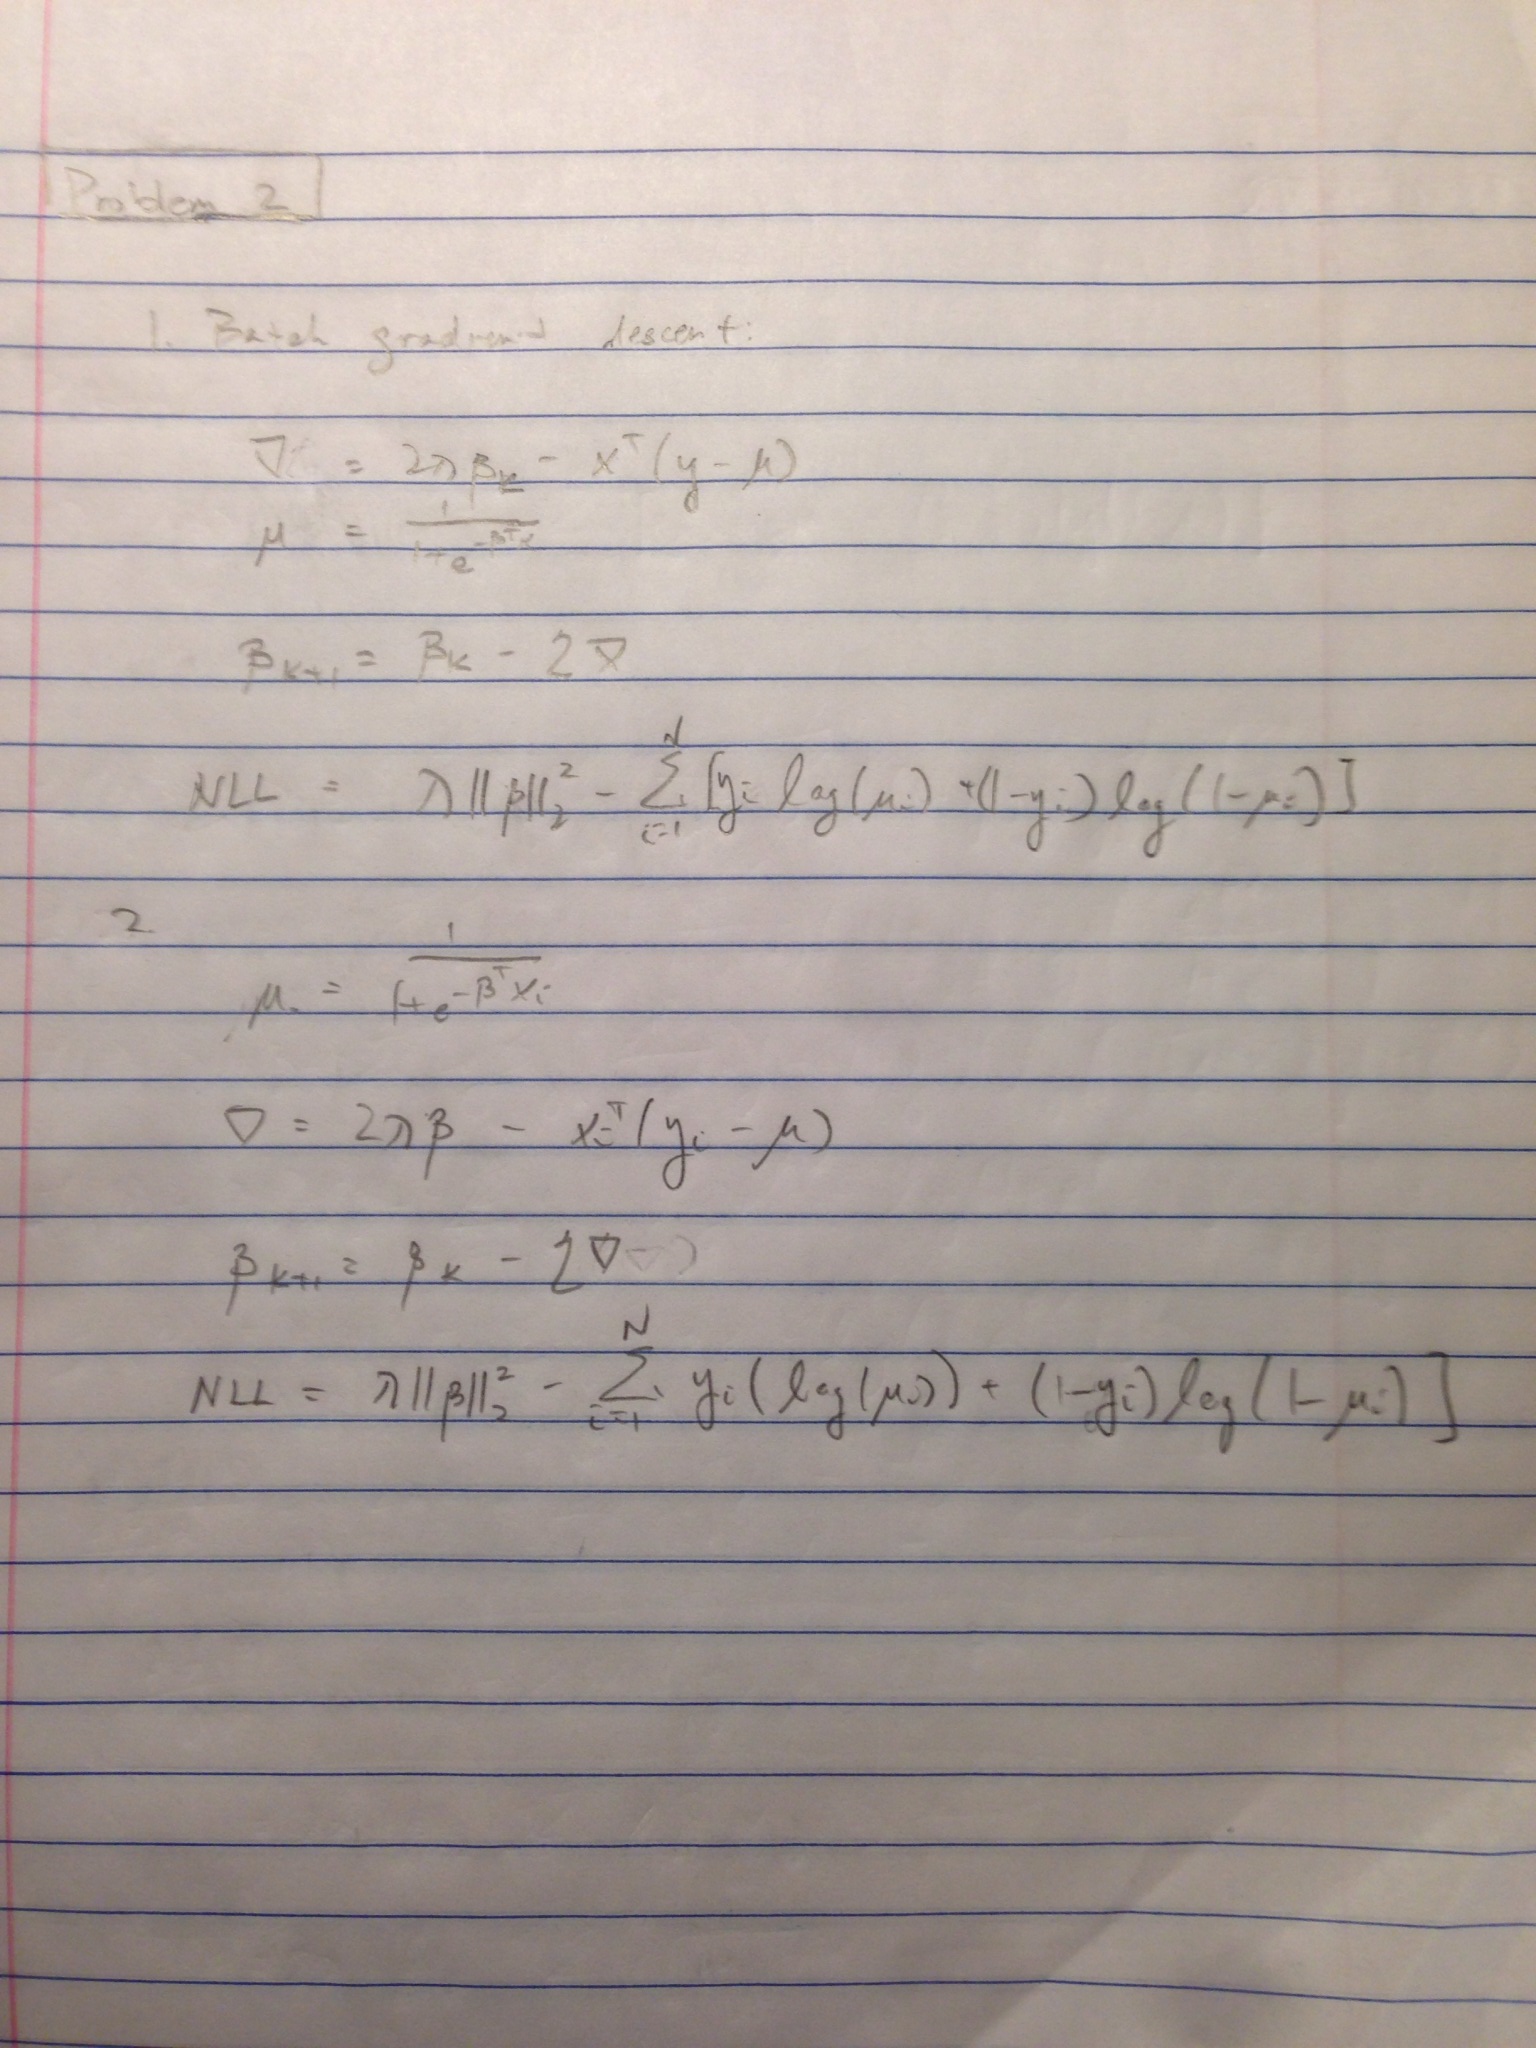 Problem 2
1. Batch gradient descent:
∇ = 2λβ_k - X^T(y - μ)
μ = 1/(1+e^(-β^T x))
β_{k+1} = β_k - η∇
NLL = λ||β||_2^2 - Σ_{i=1}^N [y_i log(μ_i) + (1-y_i) log(1-μ_i)]
2.
μ_i = 1/(1+e^(-β^T x_i))
∇ = 2λβ - x_i^T(y_i - μ)
β_{k+1} = β_k - η∇
NLL = λ||β||_2^2 - Σ_{i=1}^N y_i(log(μ_i)) + (1-y_i) log(1-μ_i)]